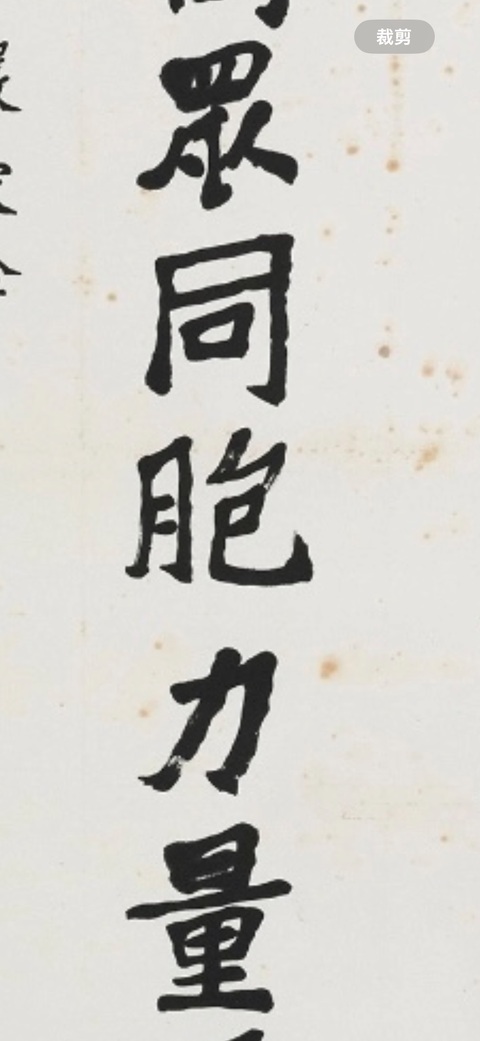 裁剪
眾同胞力量